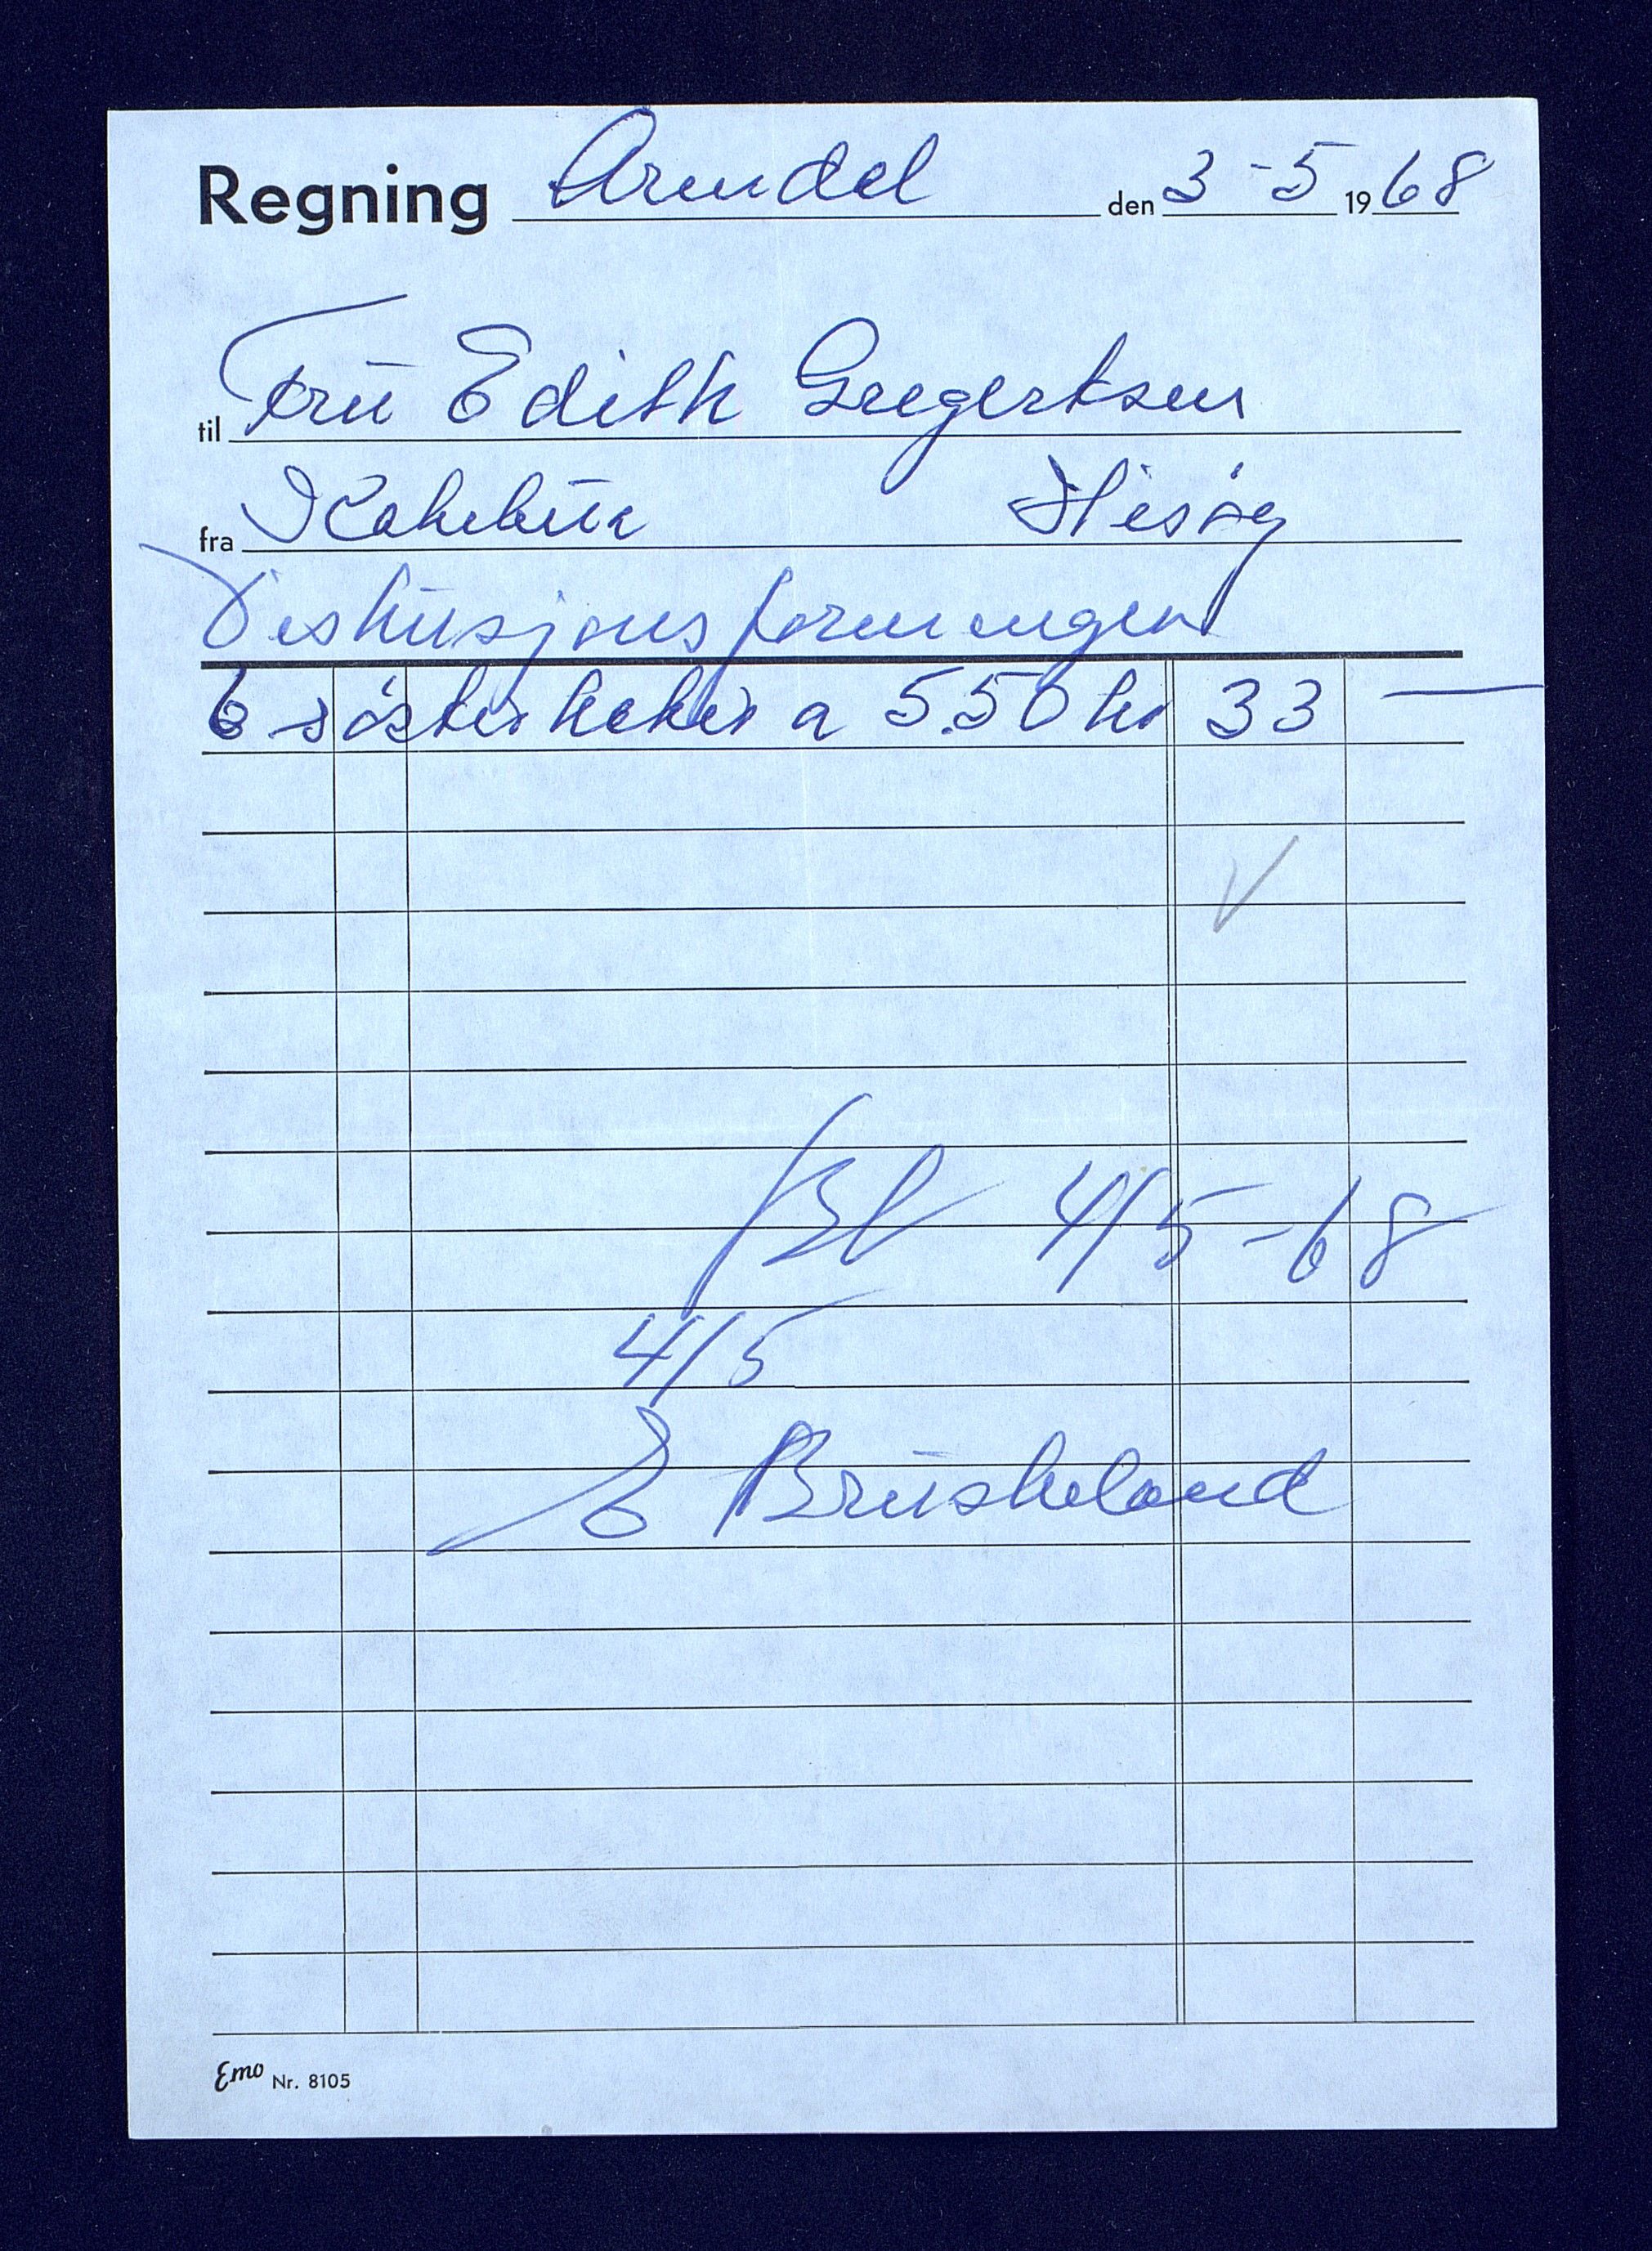 Regning Arendal den 3-5 1968
til Frü Edith Gregertsen
fra Kolbü Hisøy
Diskusjonsforeningen
6 søsterkaker a 5.50 kr 33 —
Bt 4/5-68
4/5
E Brüskeland
Emo Nr. 8105